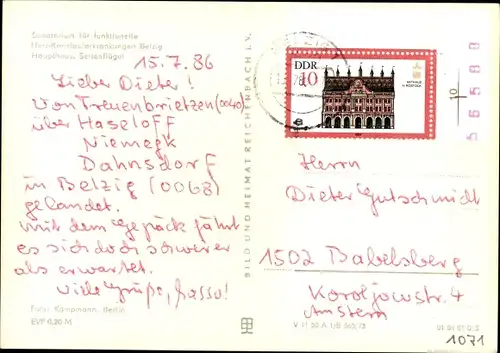 Sanatorium für funktionelle
Herz-Kreislauferkrankungen Belzig
Haupthaus, Seitenflügel
15.7.86
Lieber Dieter!
Von Treuenbrietzen (0040)
über Haseloff
Niemegk
Dahnsdorf
in Belzig (0068)
gelandet.
mit dem Gepäck fährt
es sich doch schwerer
als erwartet.
Viele Grüße, Hasso!
Foto: Kampmann, Berlin
EVP 0,20 M
BILD UND HEIMAT REICHENBACH I. V.
DDR
10
RATHAUS
IN ROSTOCK
10
Herrn
Dieter Gutschmidt
1502 Babelsberg
Karoljowstr. 4
Am Stern
V 11 50 A 1/B 363/73
01 04 01 012
1071